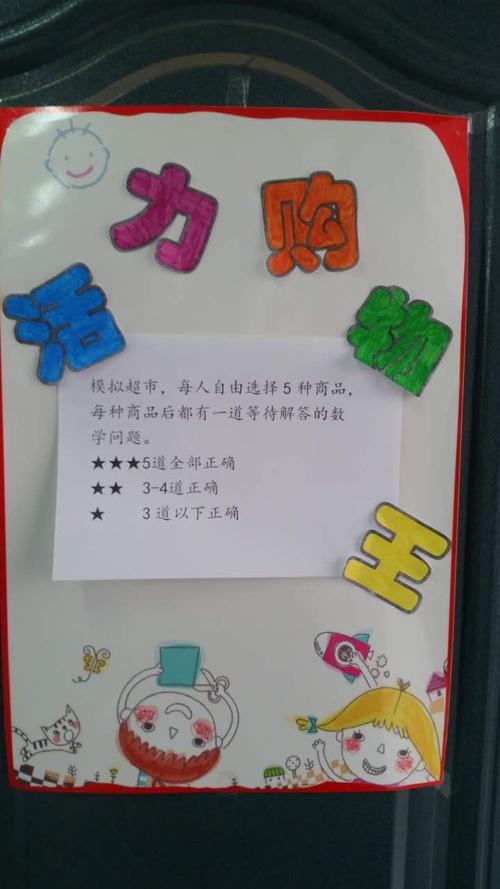 活力购物王
模拟超市，每人自由选择5种商品，
每种商品后都有一道等待解答的数
学问题。
★★★5道全部正确
★★ 3-4道正确
★ 3道以下正确